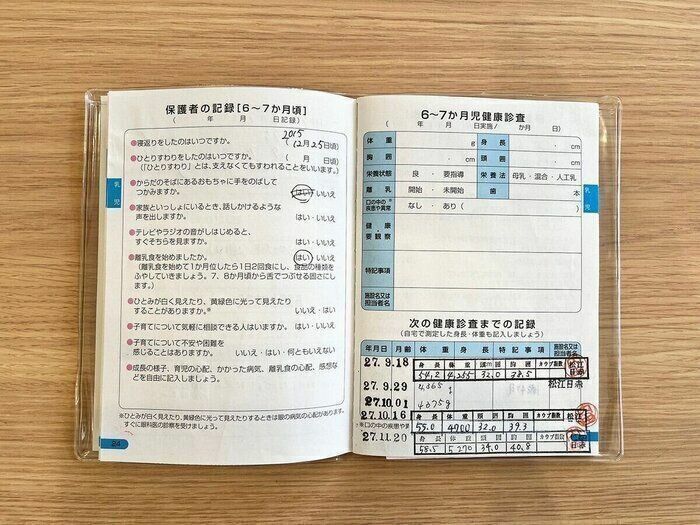 保護者の記録[6〜7か月頃]
( 年 月 日記録)
●寝返りをしたのはいつですか。 2015 (12月25日頃)
●ひとりすわりをしたのはいつですか。 ( 月 日頃)
(「ひとりすわり」とは、支えなくてもすわれることをいいます。)
●からだのそばにあるおもちゃに手をのばして
つかみますか。 はい・いいえ
●家族といっしょにいるとき、話しかけるような
声を出しますか。 はい・いいえ
●テレビやラジオの音がしはじめると、
すぐそちらを見ますか。 はい・いいえ
●離乳食を始めましたか。 はい・いいえ
(離乳食を始めて1か月位したら1日2回食にし、食品の種類を
ふやしていきましょう。7、8か月頃から舌でつぶせる固さにし
ます。)
●ひとみが白く見えたり、黄緑色に光って見えたり
することがありますか。* いいえ・はい
●子育てについて気軽に相談できる人はいますか。 はい・いいえ
●子育てについて不安や困難を
感じることはありますか。 いいえ・はい・何ともいえない
●成長の様子、育児の心配、かかった病気、離乳食の心配、感想など
を自由に記入しましょう。
※ひとみが白く見えたり、黄緑色に光って見えたりするときは眼の病気の心配があります。
すぐに眼科医の診察を受けましょう。
24
乳児
6〜7か月児健康診査
( 年 月 日実施/ か月 日)
体重 g 身長 ・ cm
胸囲 ・ cm 頭囲 ・ cm
栄養状態 良・要指導 栄養法 母乳・混合・人工乳
離乳 開始・未開始 歯 本
口の中の疾患や異常 なし・あり(
健康・要観察
特記事項
施設名又は担当者名
乳児
次の健康診査までの記録
(自宅で測定した身長・体重も記入しましょう)
年月日 月齢 体重 身長 特記事項 施設名又は担当者名
27.9.18 身長 体重 頭囲 胸囲 カウプ指数 松江日赤
54.2 4,255 32.0 38.5
27.9.29 4,365g 松江日赤
27.10.01 4375g
27.10.16 身長 体重 頭囲 胸囲 カウプ指数 松江
※口の中の疾患や異 55.0 4700 32.0 39.3
27.11.20 身長 体重 頭囲 胸囲 カウプ指数 日赤
58.5 5270 34.0 40.8